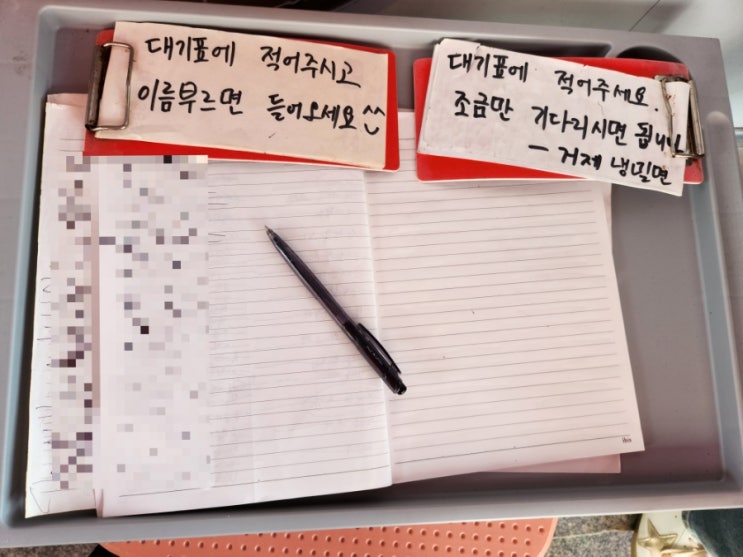 대기표에 적어주시고
이름부르면 들어오세요 ^^
대기표에 적어주세요.
조금만 기다리시면 됩니다
- 거제 냉밀면
ibis